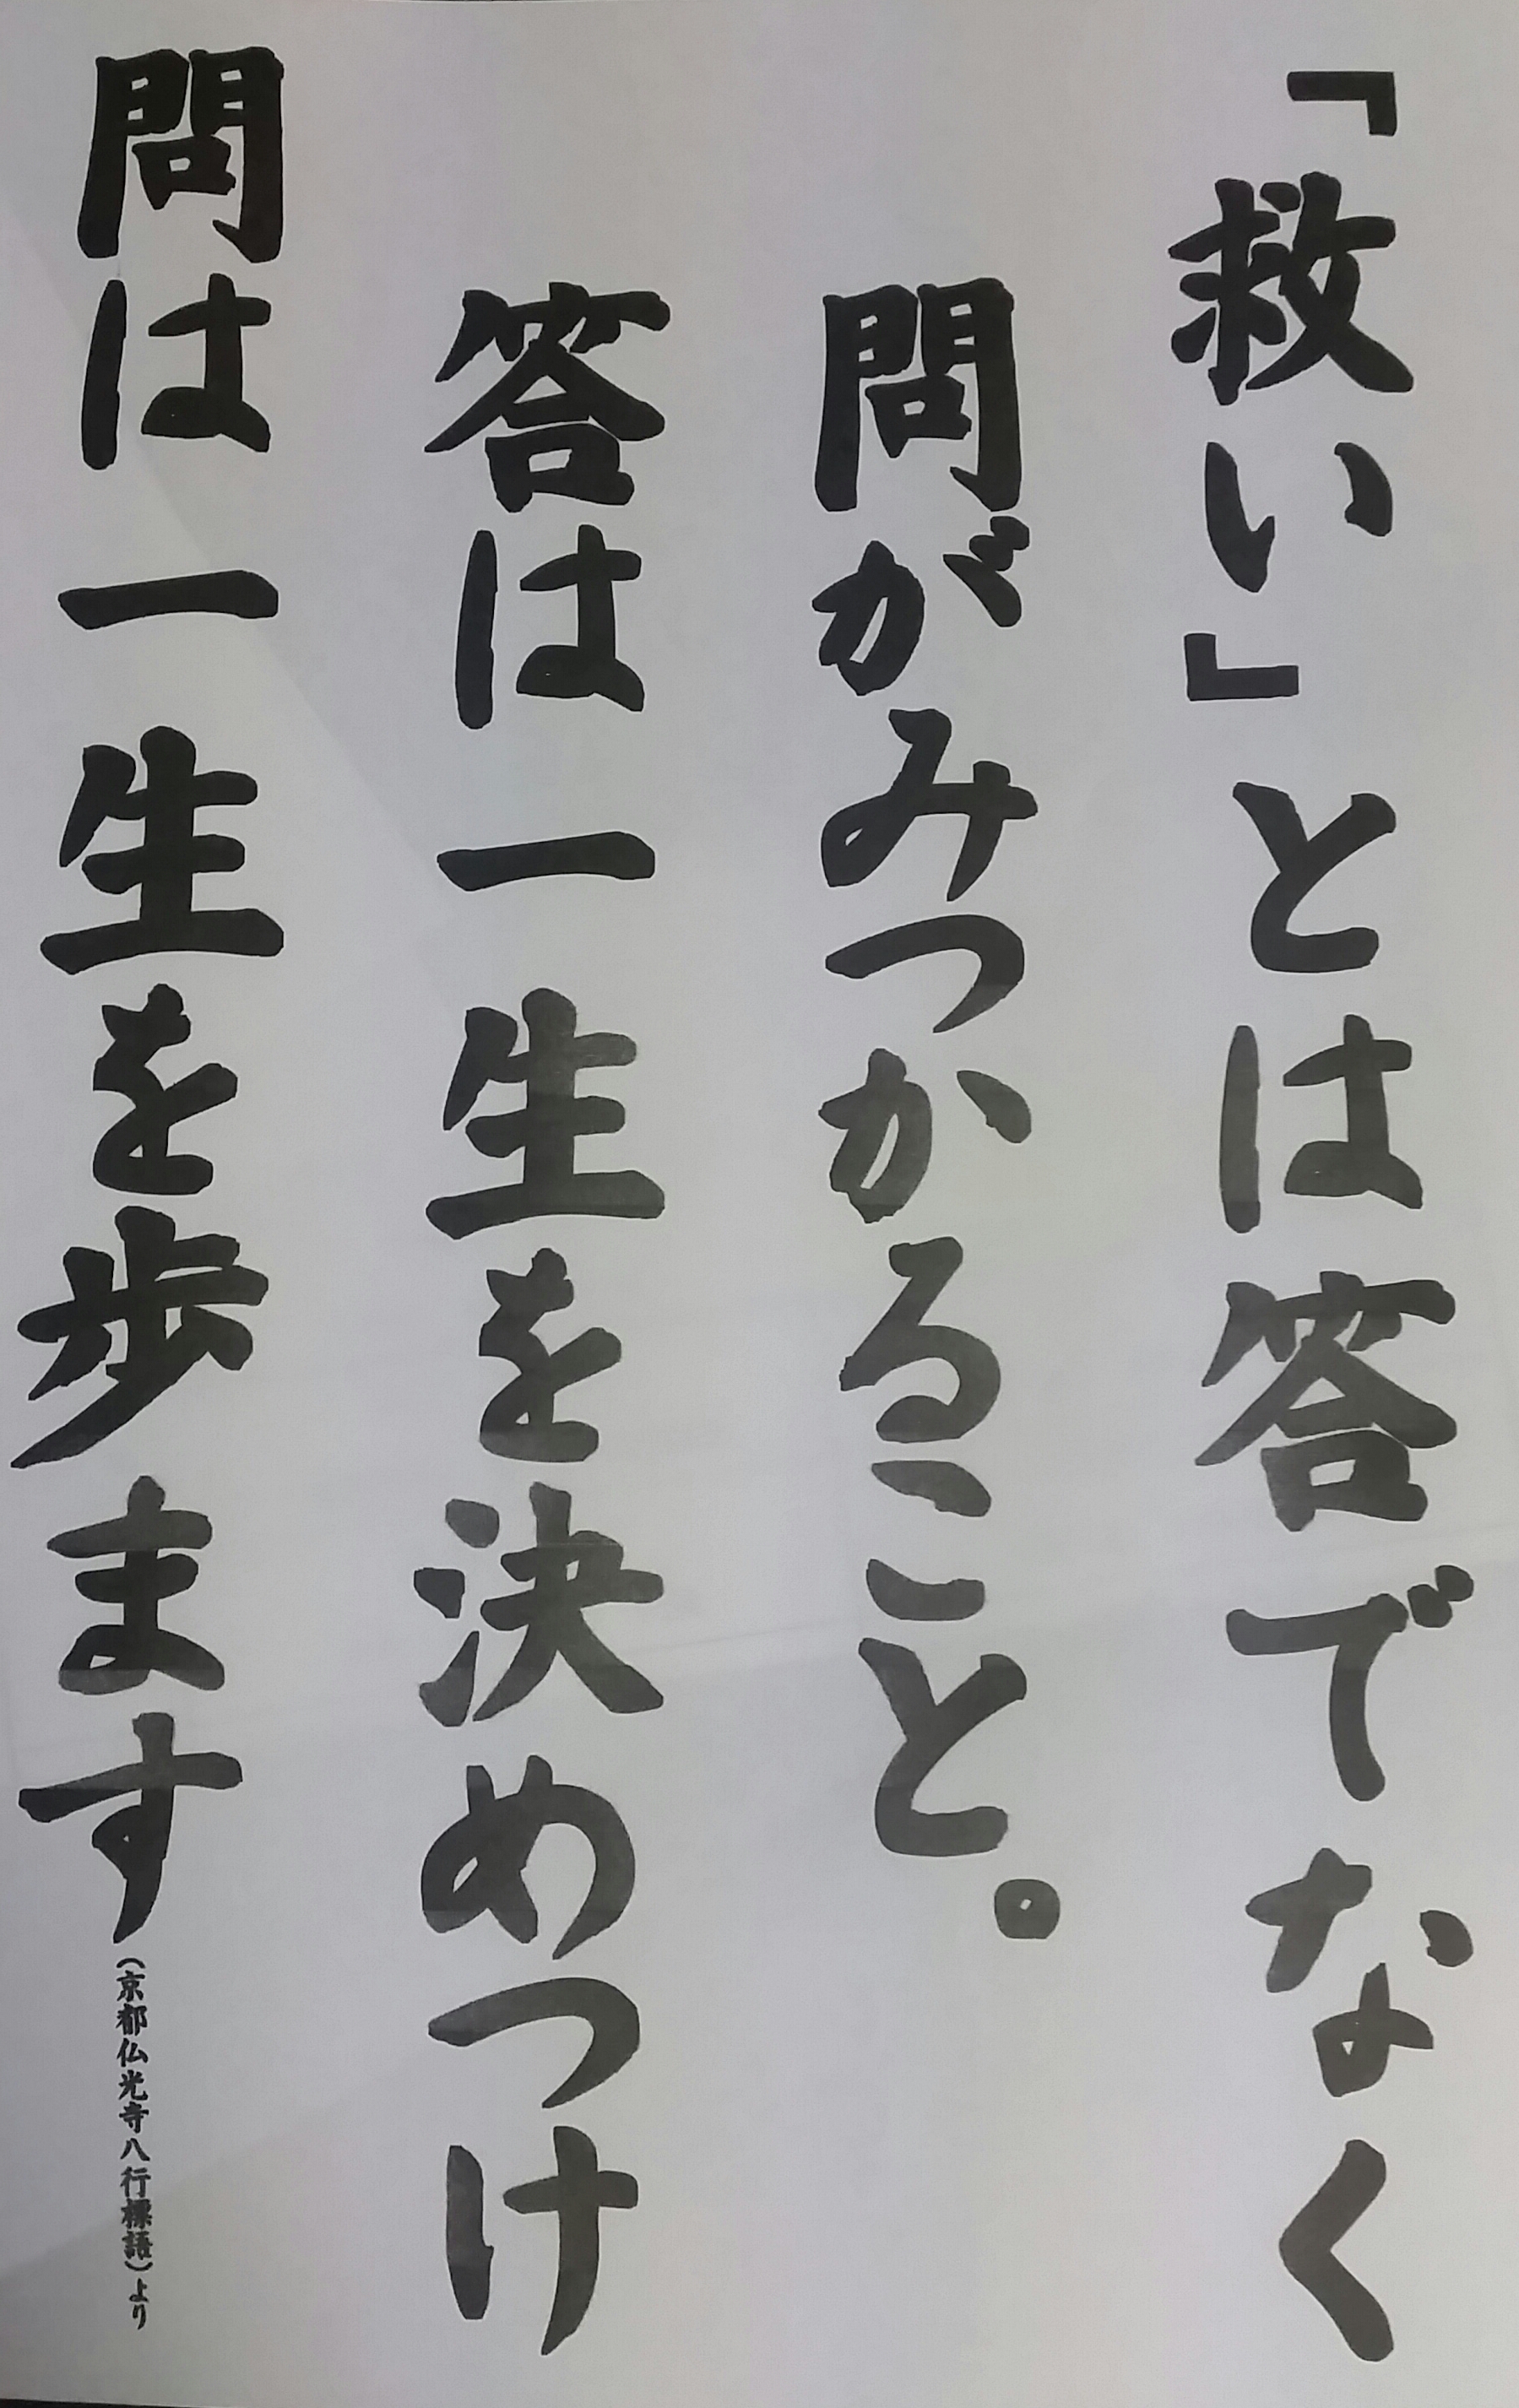 「救い」とは答でなく
問がみつかること。
答は一生を決めつけ
問は一生を歩ます
（京都仏光寺八行標語）より